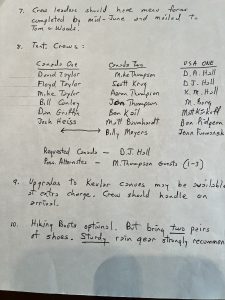 7. Crew leaders should have menu forms
completed by mid-June and mailed to
Tom & Woods.
8. Tent Crews:
Canada One Canada Two USA ONE
David Taylor Mike Thompson D. A. Hall
Floyd Taylor Scott Krog D. J. Hall
Mike Taylor Aaron Thompson K. M. Hall
Bill Conley Jon Thompson M. Borg
Dan Griffin Ben Kail Matt
Josh Reiss Matt Bumhardt Ben
Billy Meyers Jenn
Requested Canada - D.J. Hall
Poss. Alternates - M. Thompson Guests (1-3)
9. Upgrades to Kevlar canoes may be available
at extra charge. Crew should handle on
arrival.
10. Hiking Boots optional. But bring two pairs
of shoes. Sturdy rain gear strongly recommen